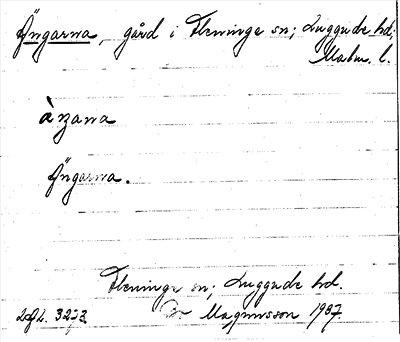 Ängarna, gård i Fleninge sn; Luggude hd;
Malm. l.
àṇana
Ängarna.
Fleninge sn; Luggude hd.
Magnusson 1937.